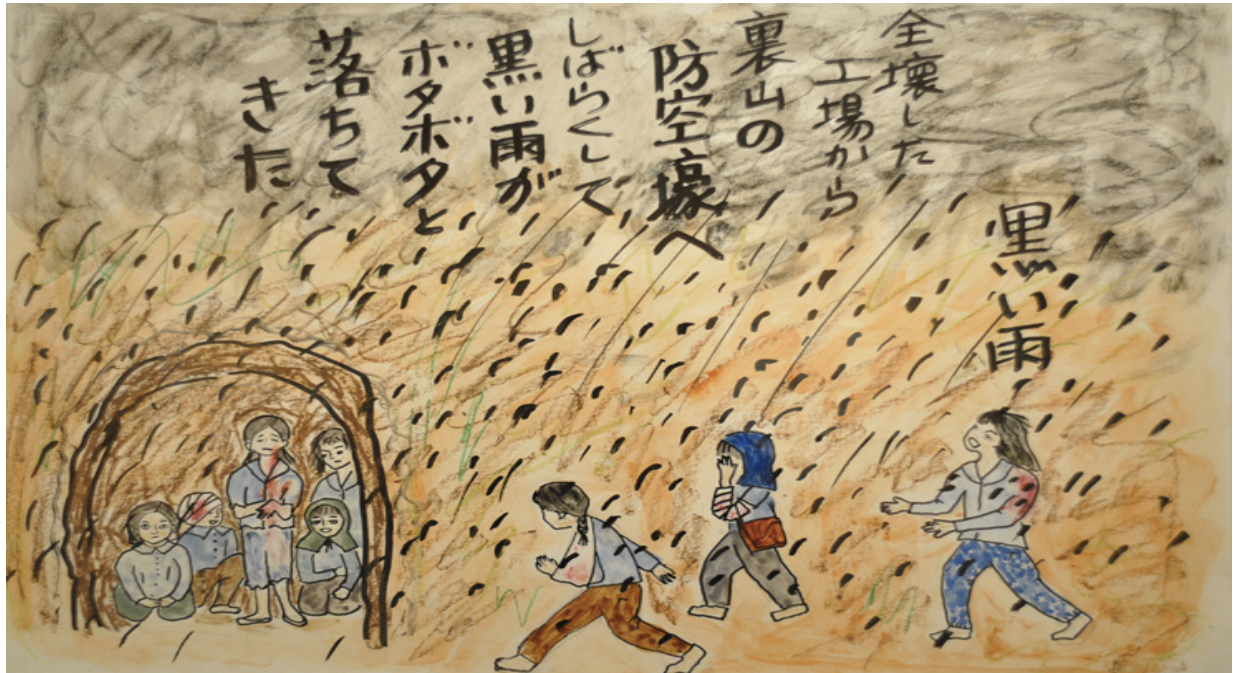 黒い雨
全壊した
工場から
裏山の
防空壕へ
しばらくして
黒い雨が
ボタボタと
落ちて
きた